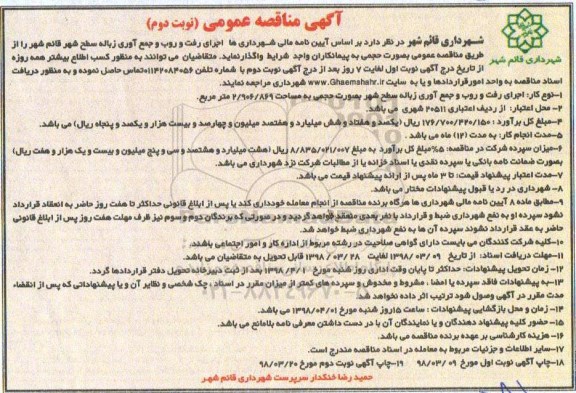 آگهی مناقصه عمومی (نوبت دوم)
شهرداری قائم شهر
شهرداری قائم شهر در نظر دارد بر اساس آیین نامه مالی شهرداری ها اجرای رفت و روب و جمع آوری زباله سطح شهر قائم شهر را از
طریق مناقصه عمومی بصورت حجمی به پیمانکاران واجد شرایط واگذارنماید. متقاضیان می توانند به منظور کسب اطلاع بیشتر همه روزه
از تاریخ درج آگهی نوبت اول لغایت ۷ روز بعد از درج آگهی نوبت دوم با شماره تلفن ۰۱۱۴۲۰۸۴۰۵۶ تماس حاصل نموده و به منظور دریافت
اسناد مناقصه به واحد امورقراردادها و یا به سایت www.Ghaemshahr.ir شهرداری مراجعه نمایند.
۱-نوع کار: اجرای رفت و روب و جمع آوری زباله سطح شهر بصورت حجمی به مساحت ۲/۹۰۶/۸۶۹ متر مربع.
۲- محل اعتبار: از ردیف اعتباری ۲۰۵۱۱ شهری می باشد.
۳-مبلغ کل برآورد : ۱۷۶/۷۰۰/۴۲۰/۱۵۰ ریال (یکصد و هفتاد و شش میلیارد و هفتصد میلیون و چهارصد و بیست هزار و یکصد و پنجاه ریال) می باشد.
۵-مدت انجام کار: به مدت (۱۲) ماه می باشد.
۶-میزان سپرده شرکت در مناقصه: ۵%مبلغ کل برآورد به مبلغ ۸/۸۳۵/۰۲۱/۰۰۷ ریال (هشت میلیارد و هشتصد و سی و پنج میلیون و بیست و یک هزار و هفت ریال)
بصورت ضمانت نامه بانکی یا سپرده نقدی یا اسناد خزانه یا از مطالبات شرکت نزد شهرداری می باشد.
۷-مدت اعتبار پیشنهاد قیمت: تا ۳ ماه پس از ارائه پیشنهاد قیمت می باشد.
۸- شهرداری در رد یا قبول پیشنهادات مختار می باشد.
۹-مطابق ماده ۸ آیین نامه مالی شهرداری ها هرگاه برنده مناقصه از انجام معامله خودداری کند یا پس از ابلاغ قانونی حداکثر تا هفت روز حاضر به انعقاد قرارداد
نشود سپرده او به نفع شهرداری ضبط و قرارداد با نفر بعدی منعقد خواهد گردید و در صورتی که برندگان دوم و سوم نیز ظرف مهلت هفت روز پس از ابلاغ قانونی
حاضر به عقد قرارداد نشوند سپرده آن ها به نفع شهرداری ضبط خواهد شد.
۱۰-کلیه شرکت کنندگان می بایست دارای گواهی صلاحیت در رشته مربوط از اداره کار و امور اجتماعی باشند.
۱۱-مهلت دریافت اسناد: از تاریخ ۰۹ /۰۳/ ۱۳۹۸ لغایت ۲۸ /۰۳/ ۱۳۹۸ قابل تحویل به متقاضیان می باشد.
۱۲- زمان تحویل پیشنهادات: حداکثر تا پایان وقت اداری روز شنبه مورخ ۱۳۹۸/۴/۱ بعد از ثبت دبیرخانه تحویل دفتر قراردادها گردد.
۱۳-به پیشنهادات فاقد سپرده یا امضا ، مشروط و مخدوش و سپرده های کمتر از میزان مقرر در اسناد ، چک شخصی و نظایر آن و یا پیشنهاداتی که پس از انقضاء
مدت مقرر در آگهی وصول شود ترتیب اثر داده نخواهد شد.
۱۴- زمان و محل بازگشایی پیشنهادات : ساعت ۱۵روز شنبه مورخ ۱۳۹۸/۰۴/۰۱ می باشد.
۱۵-حضور کلیه پیشنهاد دهندگان و یا نمایندگان آن با در دست داشتن معرفی نامه بلامانع می باشد.
۱۶- هزینه کارشناسی بر عهده برنده مناقصه می باشد.
۱۷-سایر اطلاعات و جزئیات مربوط به معامله در اسناد مناقصه مندرج است.
۱۸-چاپ آگهی نوبت اول مورخ ۰۹ /۹۸/۰۳ ۱۹-چاپ آگهی نوبت دوم مورخ ۹۸/۰۳/۲۰
حمید رضا خنکدار سرپرست شهرداری قائم شهر